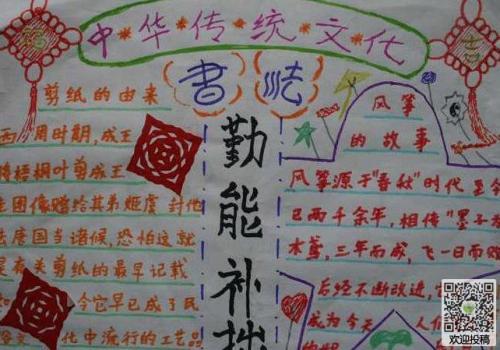 中华传统文化
福
吉
书法
勤能补拙
剪纸的由来
西周时期,成王
将梧桐叶剪成王
圭图像赠给其弟姬虞 封他
去唐国当诸侯,恐怕这就
是有关剪纸的最早记载
如 今它早已成了民
文化中流行的工艺品
风筝
的故事
风筝源于"春秋"时代 至
已两千余年,相传"墨子
木鸢,三年而成,飞一日而败
后经不断改进,
成为今天 人们
的
欢迎投稿